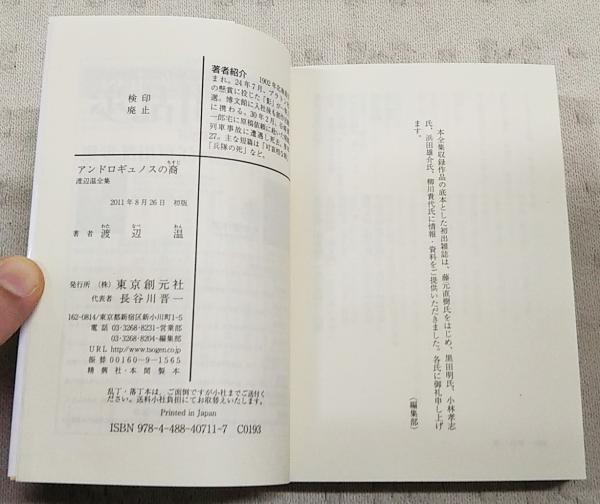 著者紹介 1902年北海道
まれ。24年7月、プラトン
の懸賞に投じた「影」が一
選。博文館に入社後も創作
に携わる。30年2月、
一郎宅に原稿依頼に
列車事故に遭遇し死去。享年
27。主な短篇は「可哀相な姉」
「兵隊の死」など。
検印
廃止
アンドロギュノスの裔
ちすじ
渡辺温全集
2011年8月26日 初版
わた なべ おん
著者 渡辺温
発行所 (株) 東京創元社
代表者 長谷川晋一
162-0814/東京都新宿区新小川町1-5
電話 03・3268・8231-営業部
03・3268・8204-編集部
URL http://www.tsogen.co.jp
振替 00160-9-1565
精興社・本間製本
乱丁・落丁本は、ご面倒ですが小社までご送付く
ださい。送料小社負担にてお取替えいたします。
Printed in Japan
ISBN 978-4-488-40711-7 C0193
本全集収録作品の底本とした初出雑誌は、藤元直樹氏をはじめ、黒田明氏、小林孝志
氏、浜田雄介氏、柳川貴代氏に情報・資料をご提供いただきました。各氏に御礼申し上げ
ます。
(編集部)